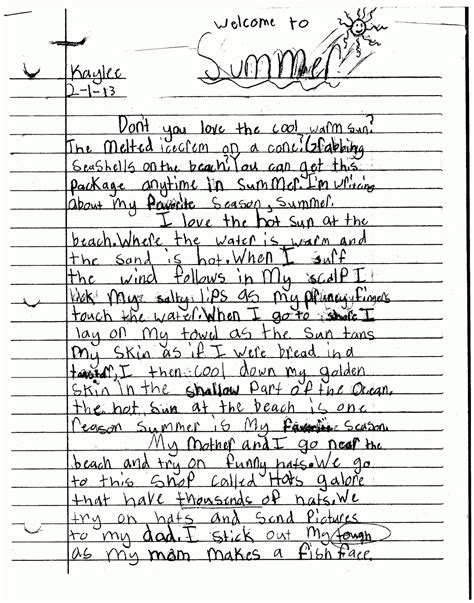 Welcome to
Summer
Kaylee
2-1-13
Don't you love the cool warm sun?
The melted icecrem on a cone? Grabbing
Seashells on the beach? You can get this
package anytime in Summer. I'm writing
about my favorite Season, Summer.
I love the hot sun at the
beach. Where the water is warm and
the sand is hot. When I surf
the wind follows in my scalp I
lick my salty lips as my pruney fingers
touch the water. When I go to shore I
lay on my towel as the sun tans
my skin as if I were bread in a
I then cool down my golden
skin in the shallow part of the Ocean.
the hot sun at the beach is one
reason Summer is my favorite season.
My Mother and I go near the
beach and try on funny hats. We go
to this shop called Hats galore
that have thousands of hats. We
try on hats and send pictures
to my dad. I stick out my tough
as my mom makes a fish face.